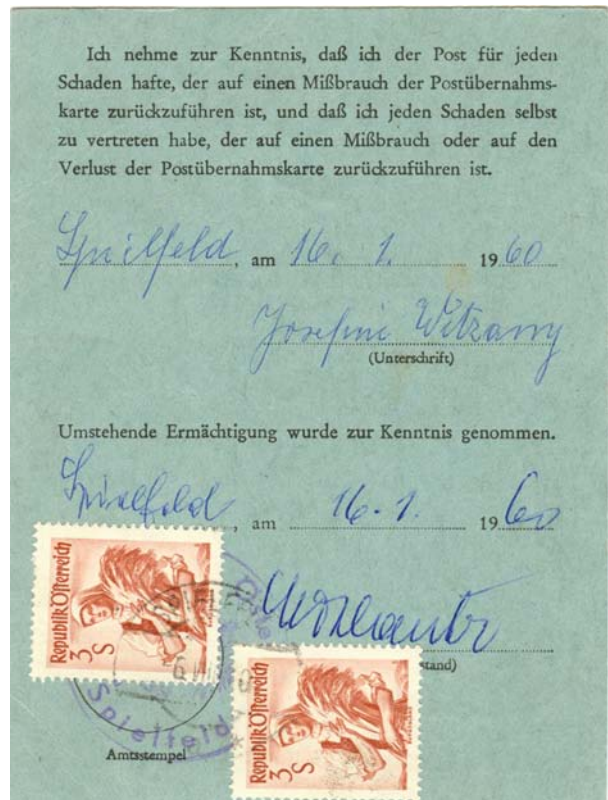 Ich nehme zur Kenntnis, daß ich der Post für jeden
Schaden hafte, der auf einen Mißbrauch der Postübernahms-
karte zurückzuführen ist, und daß ich jeden Schaden selbst
zu vertreten habe, der auf einen Mißbrauch oder auf den
Verlust der Postübernahmskarte zurückzuführen ist.
Spielfeld, am 16. 1. 1960
Josefine Witzany
(Unterschrift)
Umstehende Ermächtigung wurde zur Kenntnis genommen.
Spielfeld, am 16.1. 1960
stand)
Republik Österreich
3 S
Spielfeld
Republik Österreich
3 S
Amtsstempel